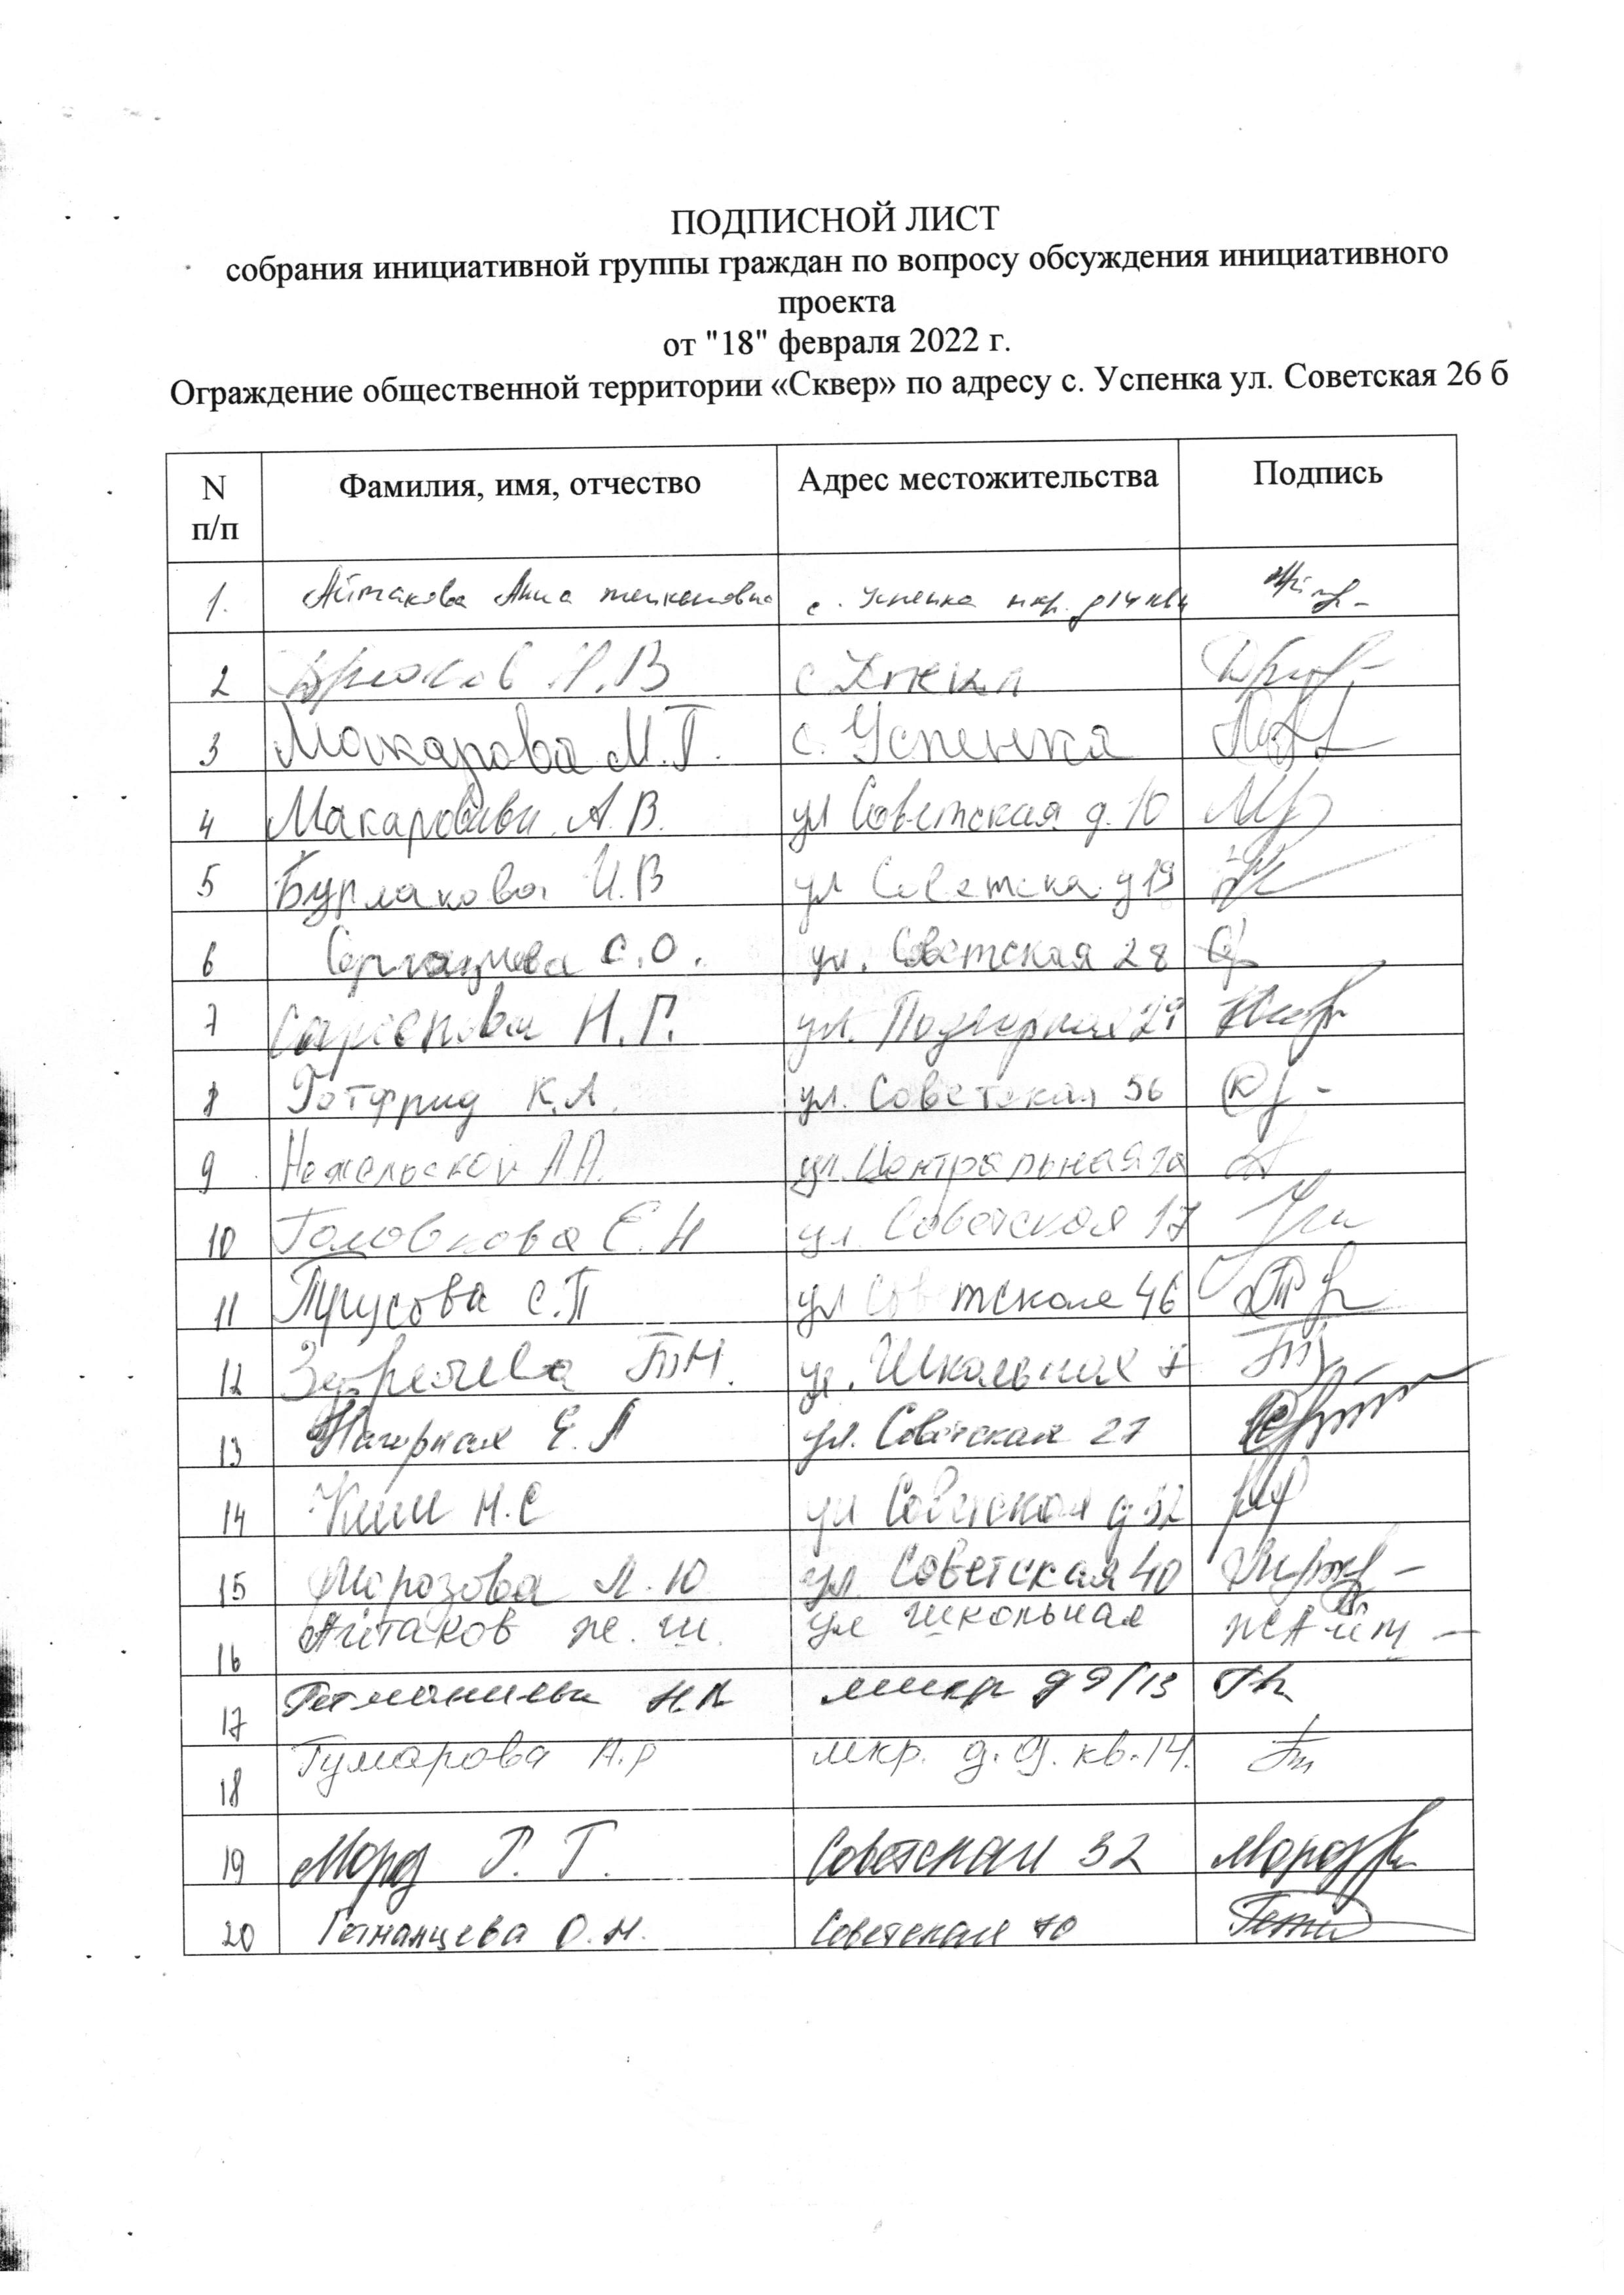 ПОДПИСНОЙ ЛИСТ
собрания инициативной группы граждан по вопросу обсуждения инициативного
проекта
от "18" февраля 2022 г.
Ограждение общественной территории «Сквер» по адресу с. Успенка ул. Советская 26 б
N п/п Фамилия, имя, отчество Адрес местожительства Подпись
1. Айтакова с. Успенка мкр.
2 В с
3 Макарова М.Г. с. Успенка
4 А.В. ул Советская д. 10
5 Бурлакова И.В ул д 19
6 С.О. ул. Советская 28
7 Н.Г. ул. Подгорная 29
8 Готфрид К.А. ул. Советская 56
9 А.А. ул. Центральная
10 Головкова Е.Н ул. Советская 17
11 Трусова С.П ул Советская 46
12 ТН. ул. Школьная 7
13 Нагорная Е.Л ул. Советская 27
14 Ким Н.С ул Советская д 52
15 Морозова Л.Ю ул. Советская 40
16 Айтаков Ж.Ш. ул Школьная
17 микр д 9/13
18 Гумарова А.Р мкр. д.9. кв.14.
19 Мороз Р.Г. Советская 32 Мороз
20 О.Н. Советская 70